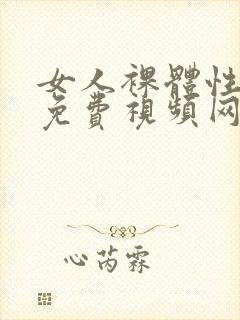 女人裸體性
免費視頻网
心芮霖